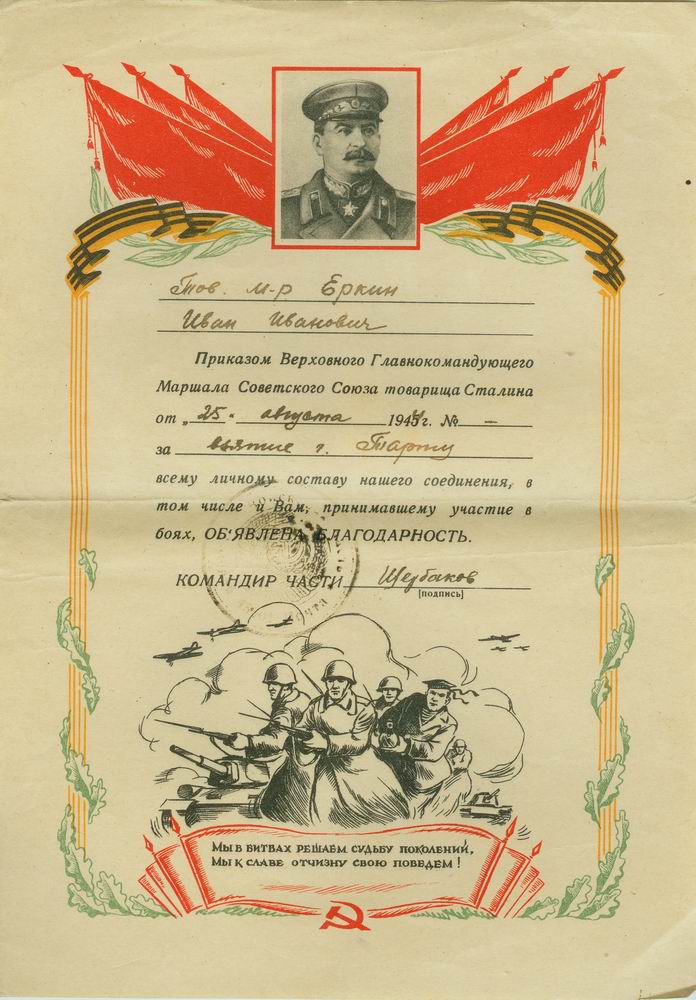 Тов. м-р Еркин
Иван Иванович
Приказом Верховного Главнокомандующего
Маршала Советского Союза товарища Сталина
от „25“ августа 1944 г. № —
за взятие г. Тарту
всему личному составу нашего соединения, в
том числе и Вам, принимавшему участие в
боях, ОБ'ЯВЛЕНА БЛАГОДАРНОСТЬ.
КОМАНДИР ЧАСТИ Щербаков
[подпись]
МЫ В БИТВАХ РЕШАЕМ СУДЬБУ ПОКОЛЕНИЙ,
МЫ К СЛАВЕ ОТЧИЗНУ СВОЮ ПОВЕДЕМ!